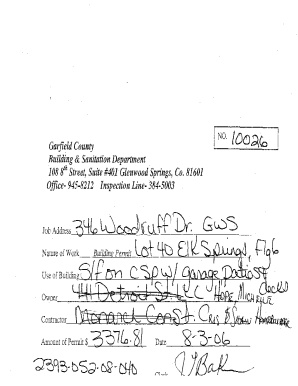 NO. 10026
Garfield County
Building & Sanitation Department
108 8th Street, Suite #401 Glenwood Springs, Co. 81601
Office- 945-8212 Inspection Line- 384-5003
Job Address 346 Woodruff Dr. GWS
Nature of Work Building Permit Lot 40 Elk Springs, Flg 6
Use of Building S/f on CSP w/ garage Patios & decks
Owner Hope, Michelle
Contractor Monarch Const. Cris &
Amount of Permit $ 3376.81 Date 8-3-06
2393-052-08-040